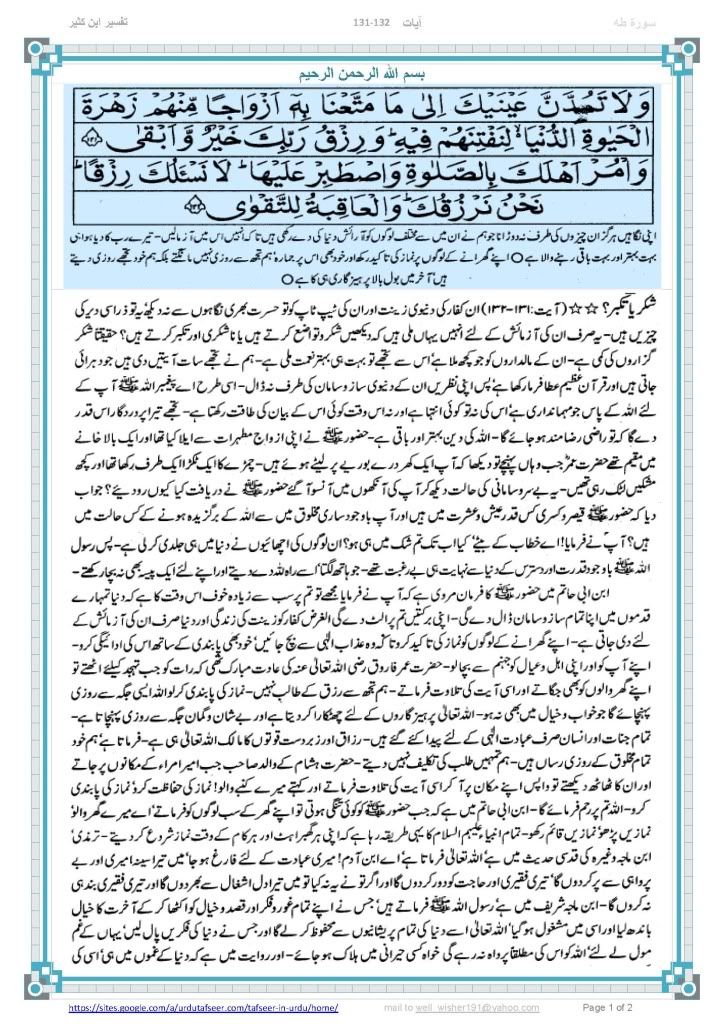 سورة طه آیات 131-132 تفسیر ابن کثیر
بسم الله الرحمن الرحیم
وَلَا تَمُدَّنَّ عَيْنَيْكَ إِلَىٰ مَا مَتَّعْنَا بِهِۦٓ أَزْوَاجًا مِّنْهُمْ زَهْرَةَ
الْحَيٰوةِ الدُّنْيَا ۙ لِنَفْتِنَهُمْ فِيْهِ ۚ وَرِزْقُ رَبِّكَ خَيْرٌ وَّاَبْقٰى ﴿۱۳۱﴾
وَأْمُرْ اَهْلَكَ بِالصَّلٰوةِ وَاصْطَبِرْ عَلَيْهَا ۚ لَا نَسْـَٔلُكَ رِزْقًا ۚ
نَحْنُ نَرْزُقُكَ ۚ وَالْعَاقِبَةُ لِلتَّقْوٰى ﴿۱۳۲﴾
اپنی نگاہیں ہرگز ان چیزوں کی طرف نہ دوڑانا جو ہم نے ان میں سے مختلف لوگوں کو آرائش دنیا کی دے رکھی ہیں تاکہ انہیں اس میں آزمالیں - تیرے رب کا دیا ہوا ہی
بہت بہتر اور بہت باقی رہنے والا ہے ○ اپنے گھرانے کے لوگوں پر نماز کی تاکید رکھ اور خود بھی اس پر جمارہ ' ہم تجھ سے روزی نہیں مانگتے بلکہ ہم خود تجھے روزی دیتے
ہیں آخر میں بول بالا پرہیزگاری ہی کا ہے ○
شکر یا تکبر؟ ☆☆ (آیت: ۱۳۱-۱۳۲) ان کفار کی دنیوی زینت اور ان کی ٹیپ ٹاپ کو تو حسرت بھری نگاہوں سے نہ دیکھ' یہ تو ذرا سی دیر کی
چیزیں ہیں - یہ صرف ان کی آزمائش کے لئے انہیں یہاں ملی ہیں کہ دیکھیں شکر و تواضع کرتے ہیں یا ناشکری اور تکبر کرتے ہیں؟ حقیقتاً شکر
گزاروں کی کمی ہے - ان کے مالداروں کو جو کچھ ملا ہے' اس سے تجھے تو بہت ہی بہتر نعمت ملی ہے - ہم نے تجھے سات آیتیں دی ہیں جو دہرائی
جاتی ہیں اور قرآن عظیم عطا فرما رکھا ہے' پس اپنی نظریں ان کے دنیوی ساز و سامان کی طرف نہ ڈال - اسی طرح اے پیغمبر اللہ ﷺ آپ کے
لئے اللہ کے پاس جو مہمانداری ہے' اس کی نہ تو کوئی انتہا ہے اور نہ اس وقت کوئی اس کے بیان کی طاقت رکھتا ہے - تجھے تیرا پروردگار اس قدر
دے گا کہ تو راضی رضا مند ہو جائے گا - اللہ کی دین بہتر اور باقی ہے - حضور ﷺ نے اپنی ازواج مطہرات سے ایلا کیا تھا اور ایک بالا خانے
میں مقیم تھے حضرت عمرؓ جب وہاں پہنچے تو دیکھا کہ آپ ایک کھردرے بوریے پر لیٹے ہوئے ہیں - چمڑے کا ایک ٹکڑا ایک طرف رکھا تھا اور کچھ
مشکیں لٹک رہی تھیں - یہ بے سروسامانی کی حالت دیکھ کر آپ کی آنکھوں میں آنسو آگئے حضور ﷺ نے دریافت کیا کیوں رو دیئے؟ جواب
دیا کہ حضور ﷺ قیصر و کسریٰ کس قدر عیش و عشرت میں ہیں اور آپ باوجود ساری مخلوق میں سے اللہ کے برگزیدہ ہونے کے کس حالت میں
ہیں؟ آپ نے فرمایا! اے خطاب کے بیٹے' کیا اب تک تم شک میں ہی ہو؟ ان لوگوں کی اچھائیوں نے دنیا میں ہی جلدی کر لی ہے - پس رسول
اللہ ﷺ باوجود قدرت اور دسترس کے دنیا سے نہایت ہی بے رغبت تھے - جو ہاتھ لگتا' اسے راہ للہ دے دیتے اور اپنے لئے ایک پیسہ بھی نہ بچا رکھتے -
ابن ابی حاتم میں حضور ﷺ کا فرمان مروی ہے کہ آپ نے فرمایا مجھے تو تم پر سب سے زیادہ خوف اس وقت کا ہے کہ دنیا تمہارے
قدموں میں اپنا تمام ساز و سامان ڈال دے گی - اپنی برکتیں تم پر الٹ دے گی الغرض کفار کو زینت کی زندگی اور دنیا صرف ان کی آزمائش کے
لئے دی جاتی ہے - اپنے گھرانے کے لوگوں کو نماز کی تاکید کرو تا کہ وہ عذاب الٰہی سے بچ جائیں' خود بھی پابندی کے ساتھ اس کی ادائیگی کرو -
اپنے آپ کو اور اپنی اہل و عیال کو جہنم سے بچا لو - حضرت عمر فاروق رضی اللہ تعالیٰ عنہ کی عادت مبارک تھی کہ رات کو جب تہجد کیلئے اٹھتے تو
اپنے گھر والوں کو بھی جگاتے اور اسی آیت کی تلاوت فرماتے - ہم تجھ سے رزق کے طالب نہیں - نماز کی پابندی کر لو اللہ ایسی جگہ سے روزی
پہنچائے گا جو خواب و خیال میں بھی نہ ہو - اللہ تعالیٰ پرہیزگاروں کے لئے چھٹکارا کر دیتا ہے اور بے شان و گمان جگہ سے روزی پہنچاتا ہے -
تمام جنات اور انسان صرف عبادت الٰہی کے لئے پیدا کئے گئے ہیں - رزاق اور زبردست قوتوں کا مالک اللہ تعالیٰ ہی ہے - فرماتا ہے' ہم خود
تمام مخلوق کے روزی رساں ہیں - ہم تمہیں طلب کی تکلیف نہیں دیتے - حضرت ہشام کے والد صاحب جب امیر امراء کے مکانوں پر جاتے
اور ان کا ٹھاٹھ دیکھتے تو واپس اپنے مکان پر آ کر اسی آیت کی تلاوت فرماتے اور کہتے میرے کنبے والو! نماز کی حفاظت کرو' نماز کی پابندی
کرو - اللہ تم پر رحم فرمائے گا - ابن ابی حاتم میں ہے کہ جب حضور ﷺ کو کوئی تنگی ہوتی تو اپنے گھر کے سب لوگوں کو فرماتے' اے میرے گھر والو'
نمازیں پڑھو' نمازیں قائم رکھو - تمام انبیاء علیہم السلام کا یہی طریقہ رہا ہے کہ اپنی ہر گھبراہٹ اور ہر کام کے وقت نماز شروع کر دیتے - ترمذی'
ابن ماجہ وغیرہ کی قدسی حدیث میں ہے' اللہ تعالیٰ فرماتا ہے' اے ابن آدم! میری عبادت کے لئے فارغ ہو جا' میں تیرا سینہ امیری اور بے
پرواہی سے پر کردوں گا' تیری فقیری اور حاجت کو دور کردوں گا اور اگر تو نے یہ نہ کیا تو میں تیرا دل اشغال سے بھر دوں گا اور تیری فقیری بند ہی
نہ کروں گا - ابن ماجہ شریف میں ہے' رسول اللہ ﷺ فرماتے ہیں' جس نے اپنے تمام غور و فکر اور قصد و خیال کو اکٹھا کر کے آخرت کا خیال
باندھ لیا اور اسی میں مشغول ہو گیا' اللہ تعالیٰ اسے دنیا کی تمام پریشانیوں سے محفوظ کر لے گا اور جس نے دنیا کی فکریں پال لیں' یہاں کے غم
مول لے لئے' اللہ کو اس کی مطلقاً پرواہ نہ رہے گی خواہ کسی حیرانی میں ہلاک ہو جائے - اور روایت میں ہے کہ دنیا کے غموں میں ہی' اسی کی
https://sites.google.com/a/urdutafseer.com/tafseer-in-urdu/home/ mail to well_wisher191@yahoo.com Page 1 of 2